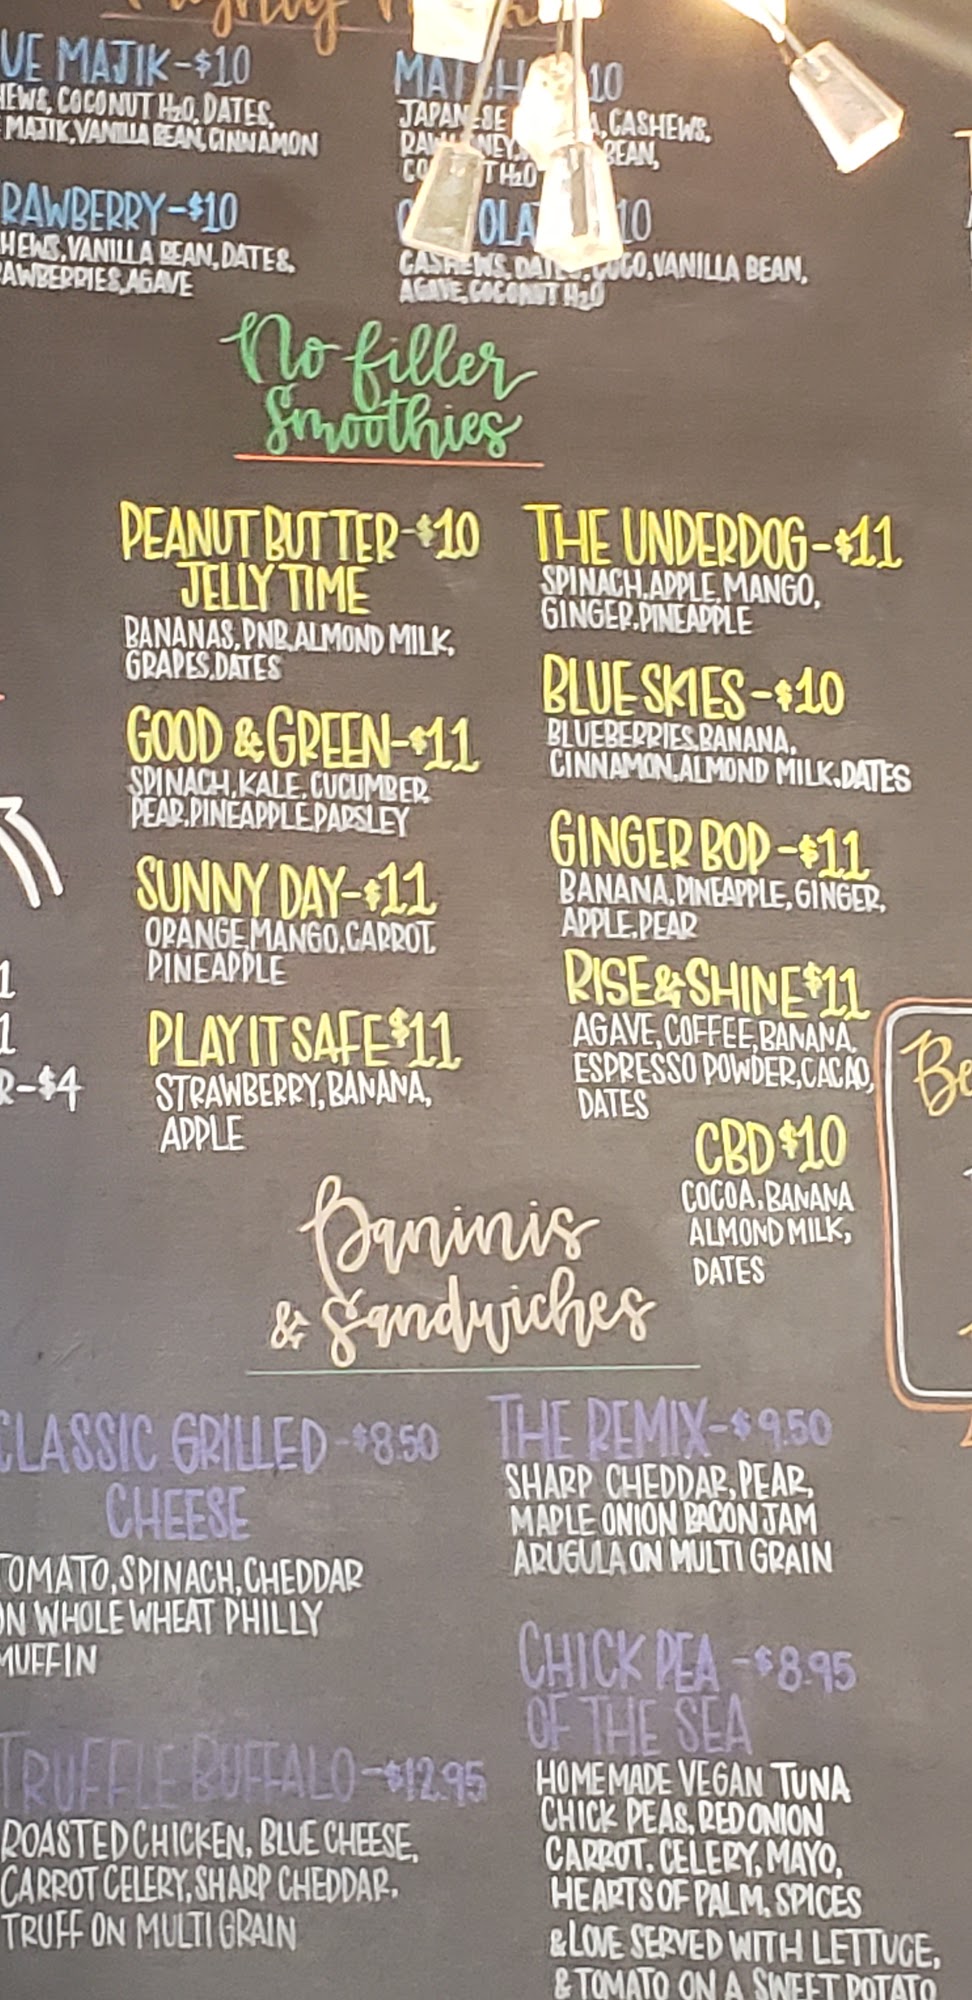 UE MAJIK-$10
HEWS, COCONUT H2O, DATES,
MAJIK, VANILLA BEAN, CINNAMON
RAWBERRY-$10
HEWS, VANILLA BEAN, DATES,
AWBERRIES, AGAVE
10
JAPANESE CASHEWS,
BEAN,
H2O
10
CASHEWS, VANILLA BEAN,
AGAVE, COCONUT H2O
No filler
Smoothies
PEANUT BUTTER-$10
JELLY TIME
BANANAS, PNB, ALMOND MILK,
GRAPES, DATES
GOOD & GREEN-$11
SPINACH, KALE, CUCUMBER,
PEAR, PINEAPPLE, PARSLEY
SUNNY DAY-$11
ORANGE, MANGO, CARROT,
PINEAPPLE
PLAY IT SAFE $11
STRAWBERRY, BANANA,
APPLE
THE UNDERDOG-$11
SPINACH, APPLE, MANGO,
GINGER, PINEAPPLE
BLUE SKIES-$10
BLUEBERRIES, BANANA,
CINNAMON, ALMOND MILK, DATES
GINGER BOP-$11
BANANA, PINEAPPLE, GINGER,
APPLE, PEAR
RISE & SHINE $11
AGAVE, COFFEE, BANANA,
ESPRESSO POWDER, CACAO,
DATES
CBD $10
COCOA, BANANA
ALMOND MILK,
DATES
1
1
R-$4
Be
Paninis
& Sandwiches
CLASSIC GRILLED-$8.50
CHEESE
TOMATO, SPINACH, CHEDDAR
ON WHOLE WHEAT PHILLY
MUFFIN
TRUFFLE BUFFALO-$12.95
ROASTED CHICKEN, BLUE CHEESE,
CARROT CELERY, SHARP CHEDDAR,
TRUFF ON MULTI GRAIN
THE REMIX-$9.50
SHARP CHEDDAR, PEAR,
MAPLE ONION BACON JAM
ARUGULA ON MULTI GRAIN
CHICK PEA-$8.95
OF THE SEA
HOMEMADE VEGAN TUNA
CHICK PEAS, RED ONION
CARROT, CELERY, MAYO,
HEARTS OF PALM, SPICES
& LOVE SERVED WITH LETTUCE,
& TOMATO ON A SWEET POTATO